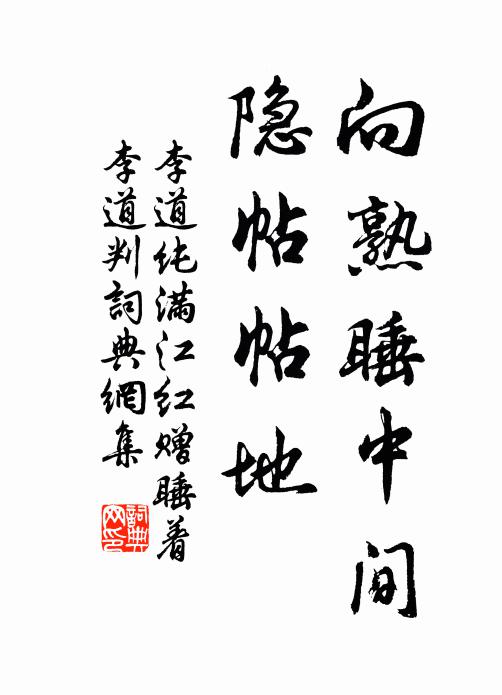 向熟睡中间
隐帖帖地
李道纯满江红赠睡着
李道判詞典網集
詞典网印